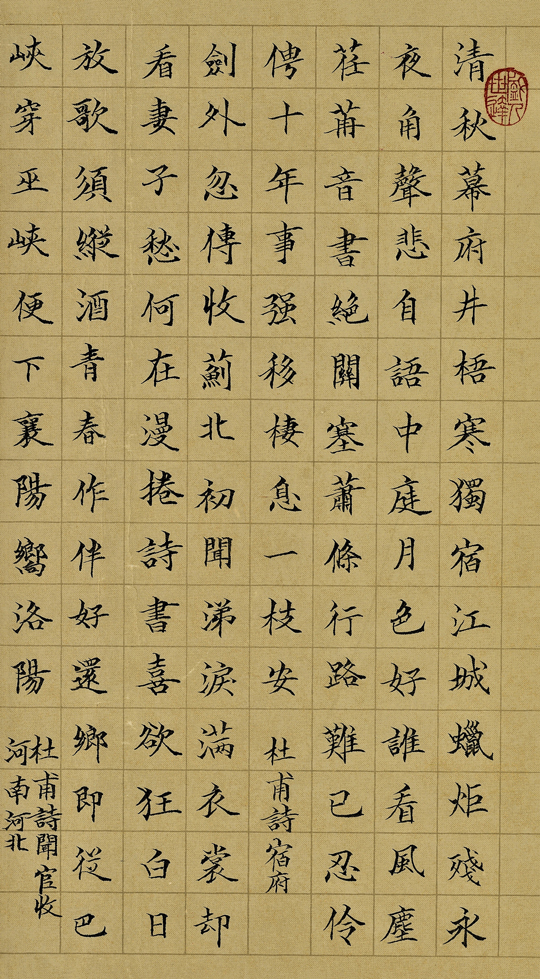 清秋幕府井梧寒獨宿江城蠟炬殘永
夜角聲悲自語中庭月色好誰看風塵
荏苒音書絕關塞蕭條行路難已忍伶
俜十年事强移棲息一枝安杜甫詩宿府
劍外忽傳收薊北初聞涕淚滿衣裳却
看妻子愁何在漫捲詩書喜欲狂白日
放歌須縱酒青春作伴好還鄉即從巴
峽穿巫峽便下襄陽嚮洛陽
杜甫詩聞官收
河南河北